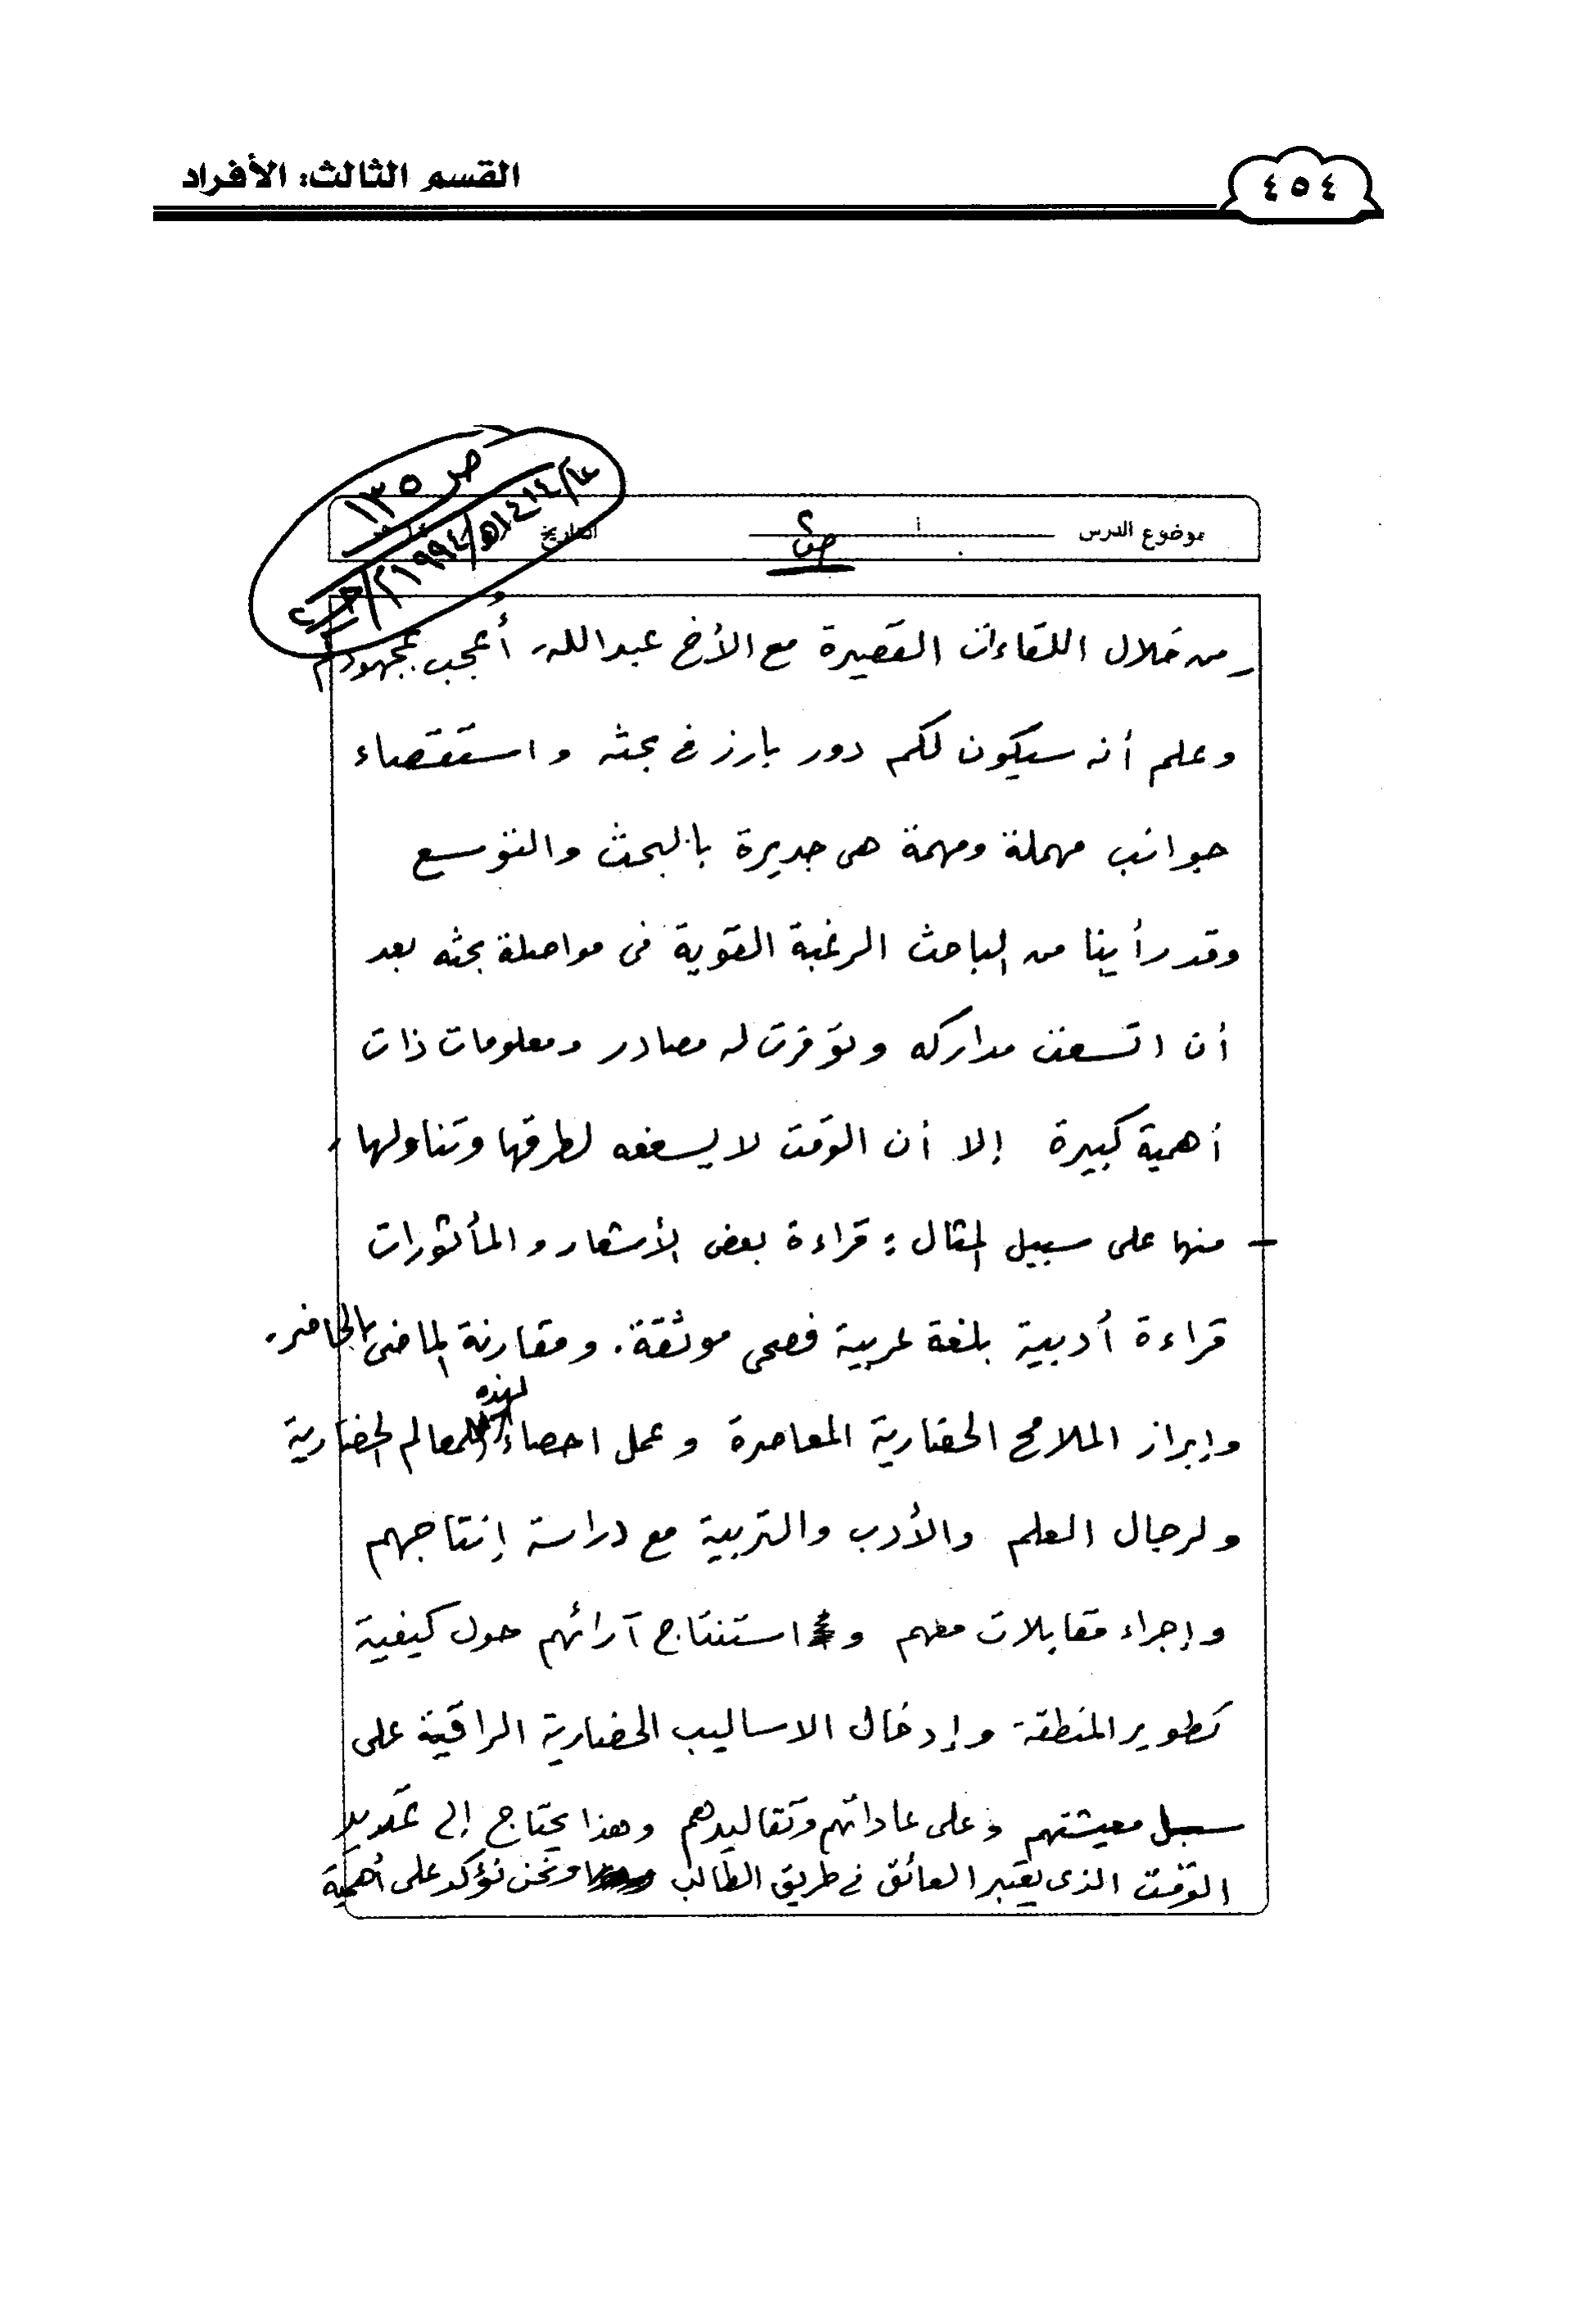 ٤٥٤
القسم الثالث: الأفراد
ص ١٣٥
١٤١٤هـ/١٩٩٤م
موضوع الدرس
التاريخ
من خلال اللقاءات القصيرة مع الأخ عبدالله أُعجب بمجهودكم
وعلم أنه سيكون لكم دور بارز في بحثه واستقصاء
جوانب مهملة ومهمة هى جديرة بالبحث والتوسع
وقد رأينا من الباحث الرغبة القوية فى مواصلة بحثه بعد
أن اتسعت مداركه وتوفرت له مصادر ومعلومات ذات
أهمية كبيرة إلا أن الوقت لا يسعفه لطرقها وتناولها ،
- منها على سبيل المثال : قراءة بعض الأشعار والمأثورات
قراءة أدبية بلغة عربية فصحى موثقة. ومقارنة الماضى بالحاضر.
وإبراز الملامح الحضارية المعاصرة وعمل احصاء لهذه المعالم الحضارية
ولرجال العلم والأدب والتربية مع دراسة إنتاجهم
وإجراء مقابلات معهم و استنتاج آرائهم حول كيفية
تطوير المنطقة وإدخال الاساليب الحضارية الراقية على
سبل معيشتهم وعلى عاداتهم وتقاليدهم وهذا يحتاج إلى تمديد
الوقت الذى يعتبر العائق في طريق الطالب ونحن نؤكد على أهمية